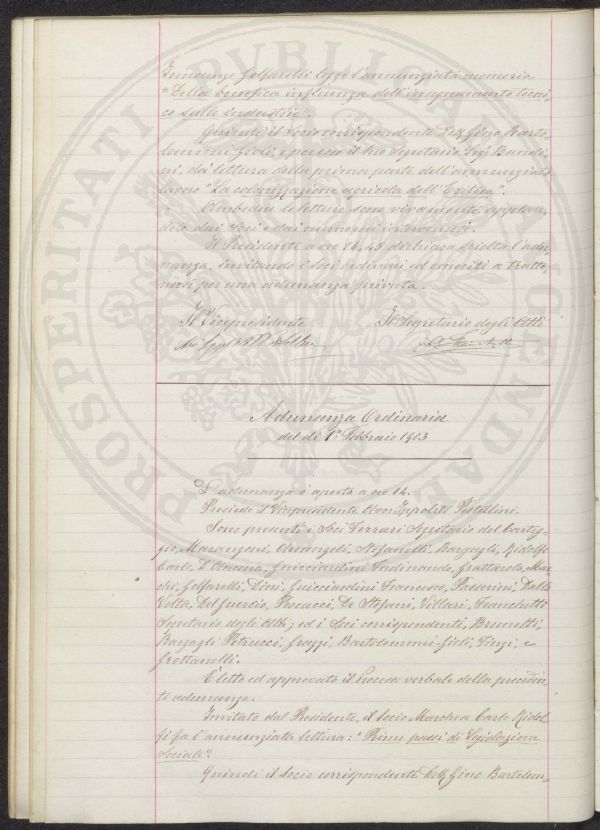 Innocenzo Golfarelli legge l'annunziata memoria
"Della benefica influenza dell'insegnamento tecni-
co sulle industrie".
Quindi il socio corrispondente Dott. Gino Barto-
lommei Gioli, e per esso il
ni, dà lettura della prima parte dell'annunziato
lavoro "La colonizzazione agricola dell'Eritrea".
Ambedue le letture sono vivamente applau-
dite dai Soci e dai numerosi intervenuti.
Il Presidente a ore 16,45 dichiara sciolta l'adu-
nanza, invitando i Soci ordinari ed emeriti a tratte-
nersi per una adunanza privata.
Il Vicepresidente Il Segretario degli Atti
Adunanza Ordinaria
del dì 1° Febbraio 1903
L'adunanza è aperta a ore 14.
Presiede il Vicepresidente Avv. Ippolito Pestellini.
Sono presenti i Soci Ferrari Segretario del Carteg-
gio, Marangoni, Arcangeli, Stefanelli, Bargagli, Ridolfi
Carlo, D'Ancona, Guicciardini Ferdinando, Grattarola, Mar-
chi, Golfarelli, Dini, Guicciardini Francesco, Passerini, Dalla
Volta, Del Guercio, Pasucci, De Stefani, Villari, Franchetti
Segretario degli Atti; ed i Soci corrispondenti, Brunetti,
Bargagli Petrucci, Grazzi, Bartolommei Gioli, Finzi, e
Grottanelli.
È letto ed approvato il Processo verbale della preceden-
te adunanza.
Invitato dal Presidente, il Socio Marchese Carlo Ridol-
fi fa l'annunziata lettura: "Primi passi di Legislazione
Sociale".
Quindi il Socio corrispondente Dott. Gino Bartolom-
PROSPERITATI PUBLICAE AUGENDAE